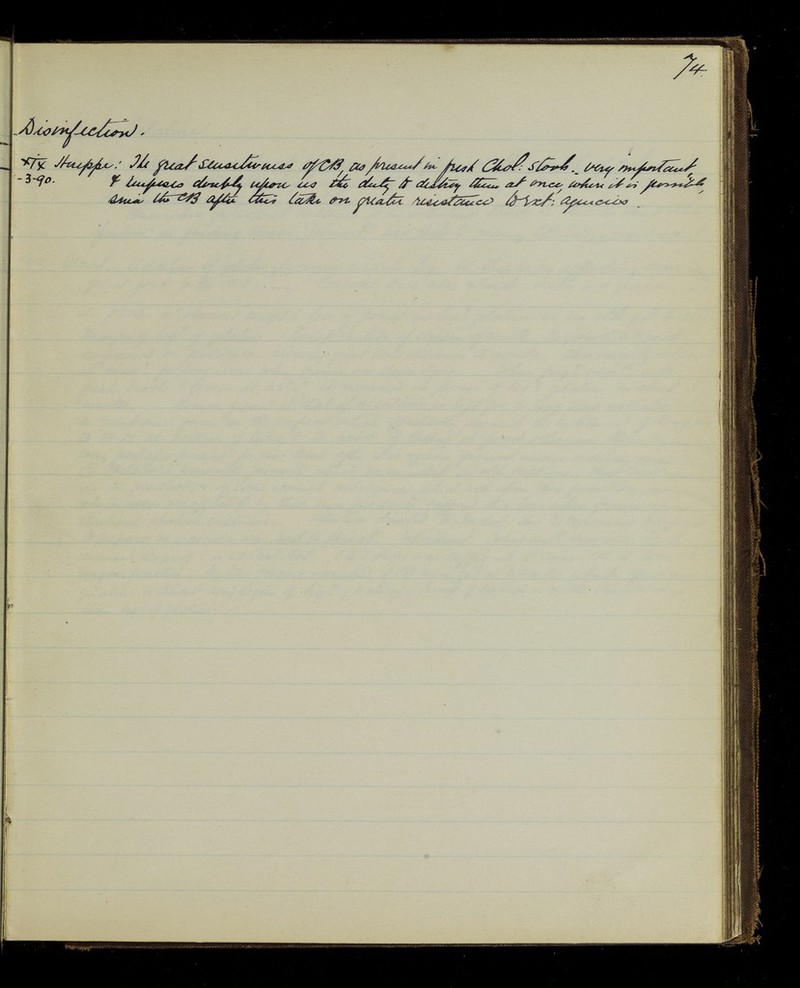 74.
Disinfection.
XIX Hueppe: The great sensitiveness of CB, as present in fresh Chol: stools. very important,
-3-90. & imposes doubly upon us the duty to destroy them at once, where it is possible,
since the CB after this take on greater resistance to Ext: agencies.